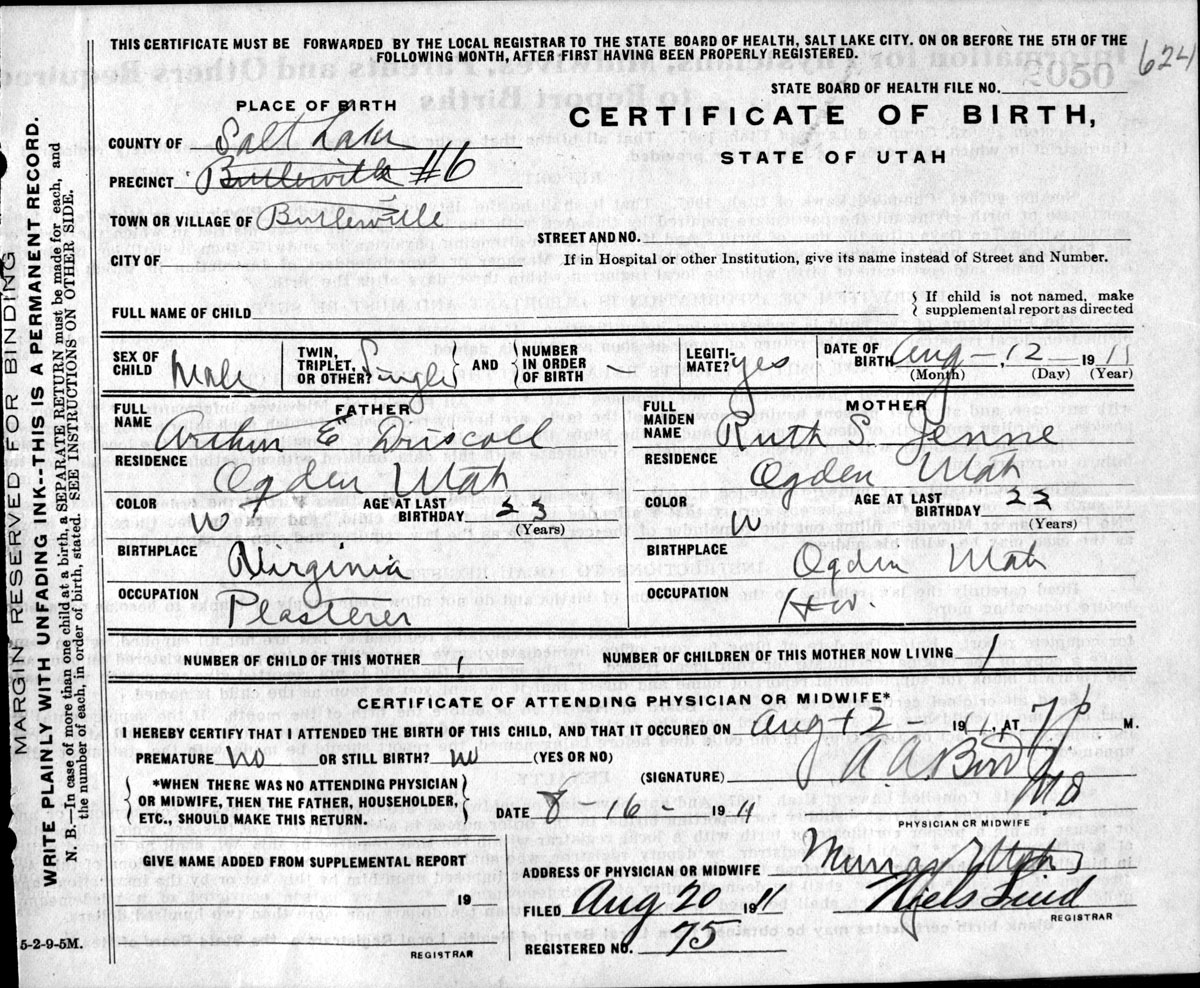 THIS CERTIFICATE MUST BE FORWARDED BY THE LOCAL REGISTRAR TO THE STATE BOARD OF HEALTH, SALT LAKE CITY. ON OR BEFORE THE 5TH OF THE
FOLLOWING MONTH, AFTER FIRST HAVING BEEN PROPERLY REGISTERED.
624
STATE BOARD OF HEALTH FILE NO.
PLACE OF BIRTH
CERTIFICATE OF BIRTH,
STATE OF UTAH
COUNTY OF Salt Lake
PRECINCT Butlerville #6
TOWN OR VILLAGE OF Butlerville
STREET AND NO.
CITY OF
If in Hospital or other Institution, give its name instead of Street and Number.
FULL NAME OF CHILD
If child is not named, make
supplemental report as directed
SEX OF CHILD Male
TWIN, TRIPLET, OR OTHER? Single AND NUMBER IN ORDER OF BIRTH -
LEGITIMATE? yes
DATE OF BIRTH Aug - 12 1911
(Month) (Day) (Year)
FATHER
FULL NAME Arthur E Driscoll
RESIDENCE Ogden Utah
COLOR W AGE AT LAST BIRTHDAY 23
(Years)
BIRTHPLACE Virginia
OCCUPATION Plasterer
MOTHER
FULL MAIDEN NAME Ruth S. Jenne
RESIDENCE Ogden Utah
COLOR W AGE AT LAST BIRTHDAY 22
(Years)
BIRTHPLACE Ogden Utah
OCCUPATION H.W.
NUMBER OF CHILD OF THIS MOTHER 1 NUMBER OF CHILDREN OF THIS MOTHER NOW LIVING 1
CERTIFICATE OF ATTENDING PHYSICIAN OR MIDWIFE*
I HEREBY CERTIFY THAT I ATTENDED THE BIRTH OF THIS CHILD, AND THAT IT OCCURED ON Aug 12 - 1911, AT 7 P M.
PREMATURE No OR STILL BIRTH? No (YES OR NO)
(SIGNATURE) A A Bird MD
PHYSICIAN OR MIDWIFE
*WHEN THERE WAS NO ATTENDING PHYSICIAN
OR MIDWIFE, THEN THE FATHER, HOUSEHOLDER,
ETC., SHOULD MAKE THIS RETURN.
DATE 8 16 1911
GIVE NAME ADDED FROM SUPPLEMENTAL REPORT
19
REGISTRAR
ADDRESS OF PHYSICIAN OR MIDWIFE Murray Utah
FILED Aug 20 1911 Niels Lind
REGISTRAR
REGISTERED NO. 75
5-2-9-5M.
MARGIN RESERVED FOR BINDING
WRITE PLAINLY WITH UNFADING INK--THIS IS A PERMANENT RECORD.
N. B.—In case of more than one child at a birth, a SEPARATE RETURN must be made for each, and
the number of each, in order of birth, stated. SEE INSTRUCTIONS ON OTHER SIDE.